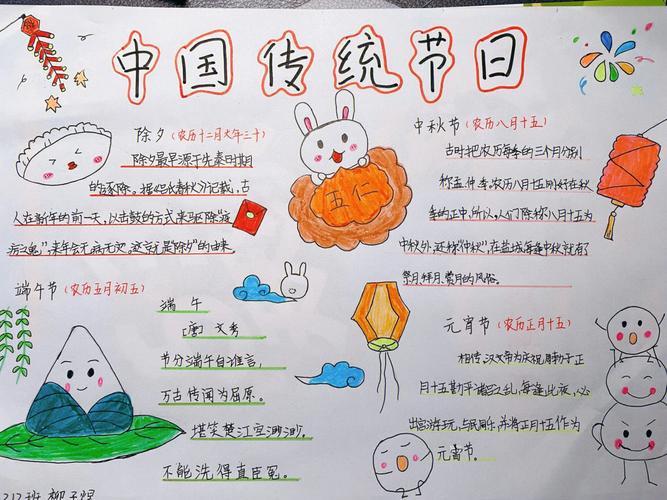 中国传统节日
除夕(农历十二月大年三十)
除夕最早源于先秦时期
的逐除。据《吕氏春秋》记载,古
人在新年的前一天,以击鼓的方式来驱除"疫
疠之鬼",来年会无病无灾。这就是"除夕"的由来。
五仁
中秋节(农历八月十五)
古时把农历每季的三个月分别
称孟仲季,农历八月十五刚好在秋
季的正中,所以,人们除称八月十五为
中秋外,还称"仲秋",在盐城每逢中秋就有
祭月拜月、赏月的风俗。
端午节(农历五月初五)
端午
[唐] 文秀
节分端午自谁言,
万古传闻为屈原。
堪笑楚江空渺渺,
不能洗得直臣冤。
元宵节(农历正月十五)
相传,汉文帝为庆祝周勃于正
月十五勘平诸吕之乱,每逢此夜,必
出宫游玩,与民同乐,并将正月十五作为
元宵节。
212班 柳子